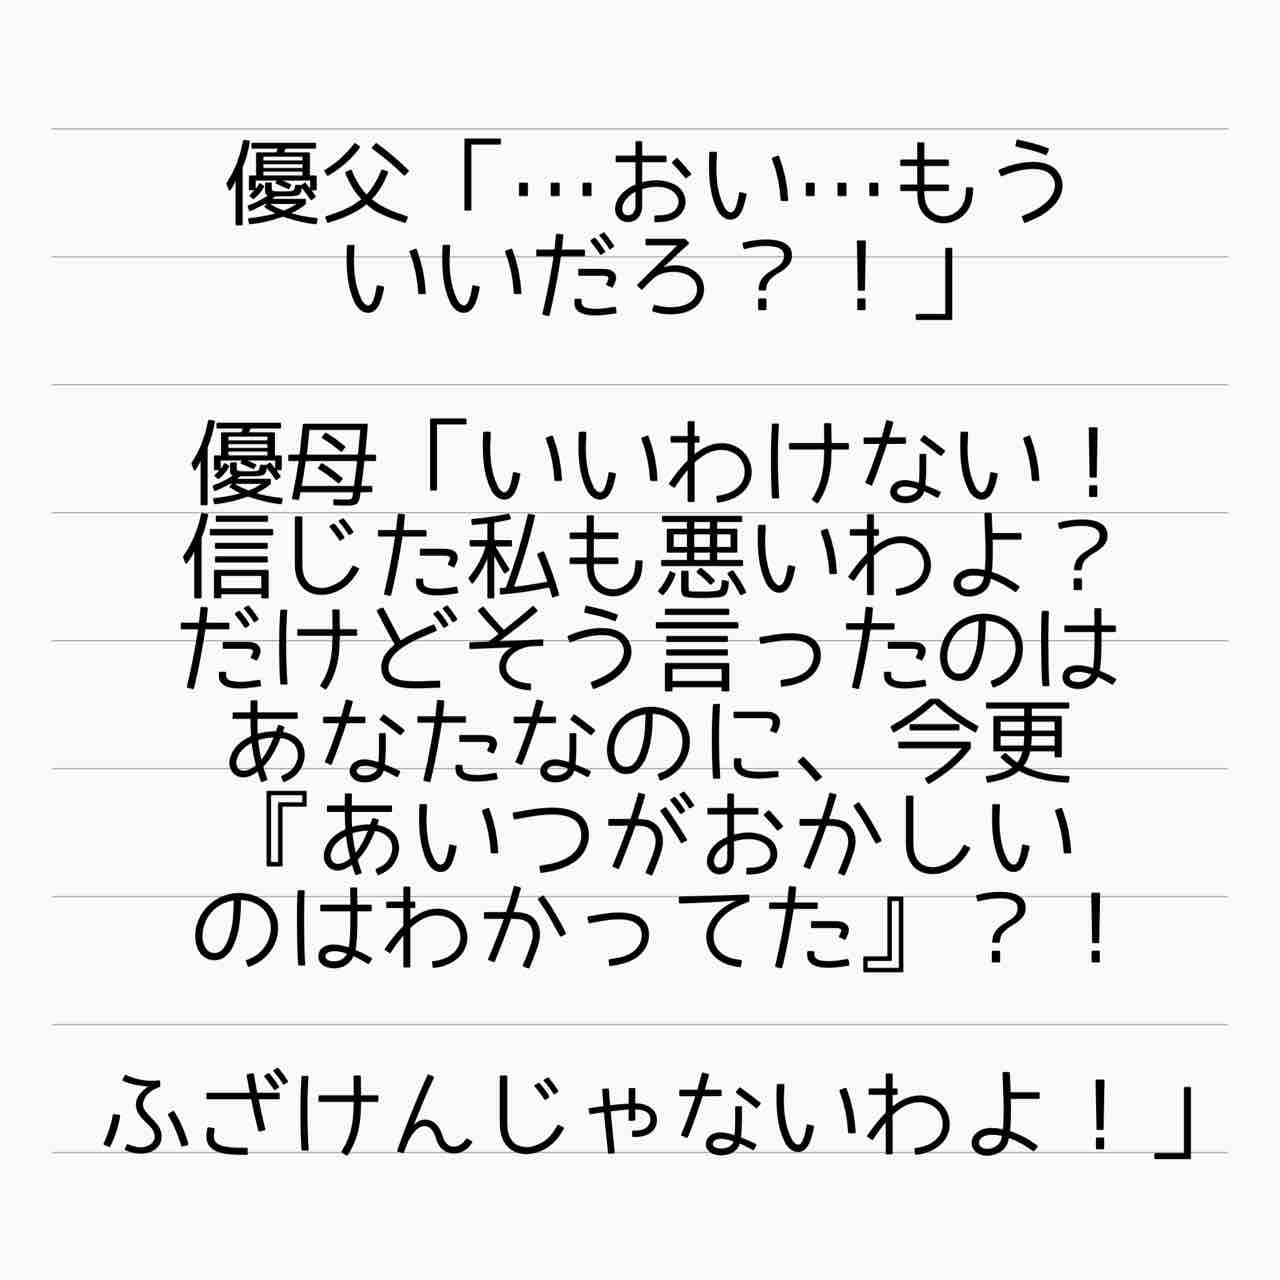 優父「…おい…もう
いいだろ？！」
優母「いいわけない！
信じた私も悪いわよ？
だけどそう言ったのは
あなたなのに、今更
『あいつがおかしい
のはわかってた』？！
ふざけんじゃないわよ！」